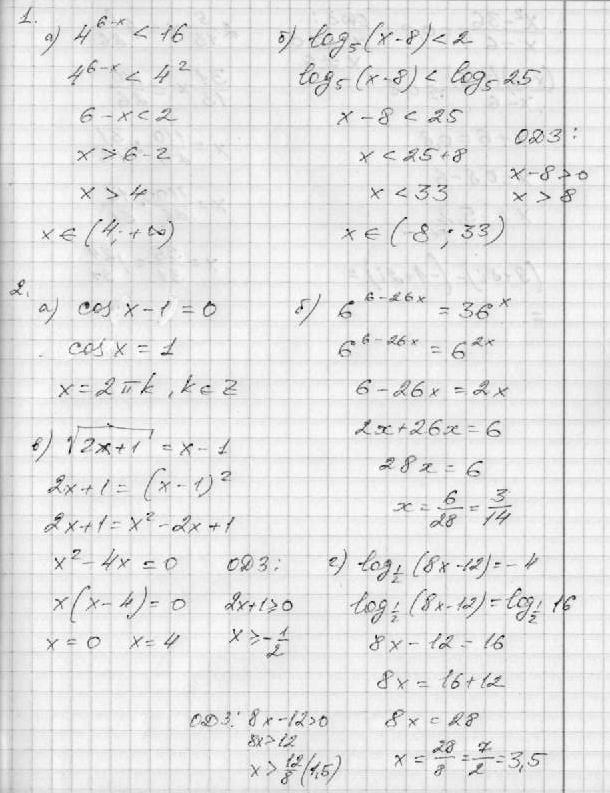 1.
а) 4^(6-x) < 16
4^(6-x) < 4^2
6-x < 2
x > 6-2
x > 4
x ∈ (4; +∞)
б) log₅(x-8) < 2
log₅(x-8) < log₅25
x-8 < 25
x < 25+8
x < 33
x ∈ (-8; 33)
ОДЗ:
x-8 > 0
x > 8
2.
а) cos x - 1 = 0
cos x = 1
x = 2πk, k ∈ Z
б) 6^(6-26x) = 36^x
6^(6-26x) = 6^(2x)
6-26x = 2x
2x+26x = 6
28x = 6
x = 6/28 = 3/14
в) √(2x+1) = x-1
2x+1 = (x-1)^2
2x+1 = x^2-2x+1
x^2-4x = 0
x(x-4) = 0
x = 0 x = 4
ОДЗ:
2x+1 ≥ 0
x ≥ -1/2
г) log_(1/2)(8x-12) = -4
log_(1/2)(8x-12) = log_(1/2)16
8x-12 = 16
8x = 16+12
8x = 28
x = 28/8 = 7/2 = 3,5
ОДЗ: 8x-12 > 0
8x > 12
x > 12/8 (1,5)